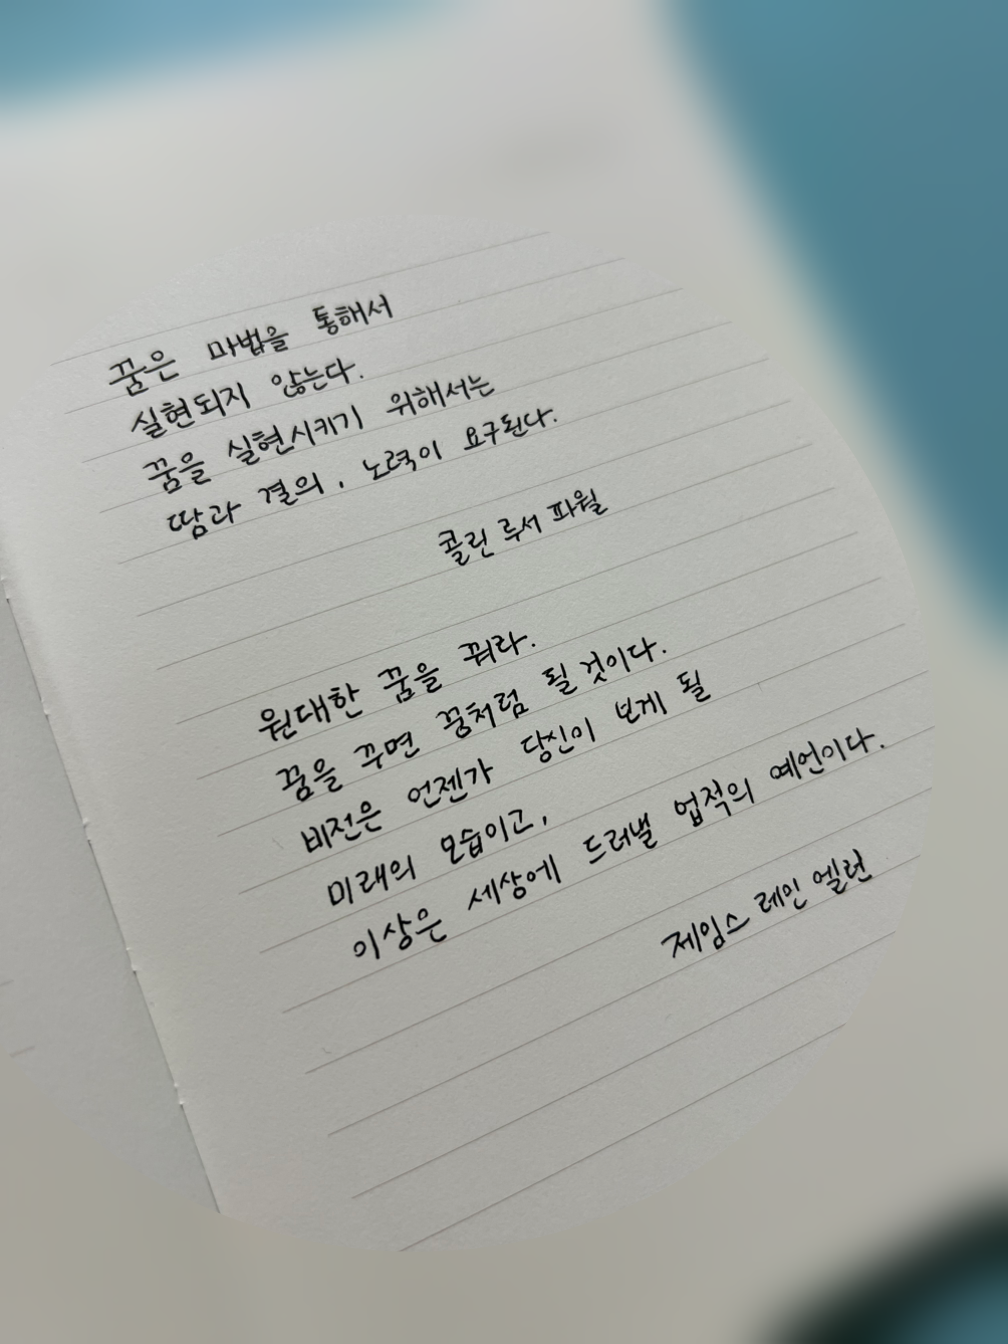 꿈은 마법을 통해서
실현되지 않는다.
꿈을 실현시키기 위해서는
땀과 결의, 노력이 요구된다.
콜린 루서 파월
원대한 꿈을 꿔라.
꿈을 꾸면 꿈처럼 될 것이다.
비전은 언젠가 당신이 보게 될
미래의 모습이고,
이상은 세상에 드러낼 업적의 예언이다.
제임스 레인 엘런